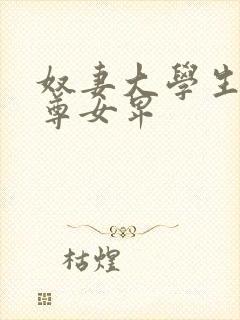 奴妻大學生
尊女卑
枯煌